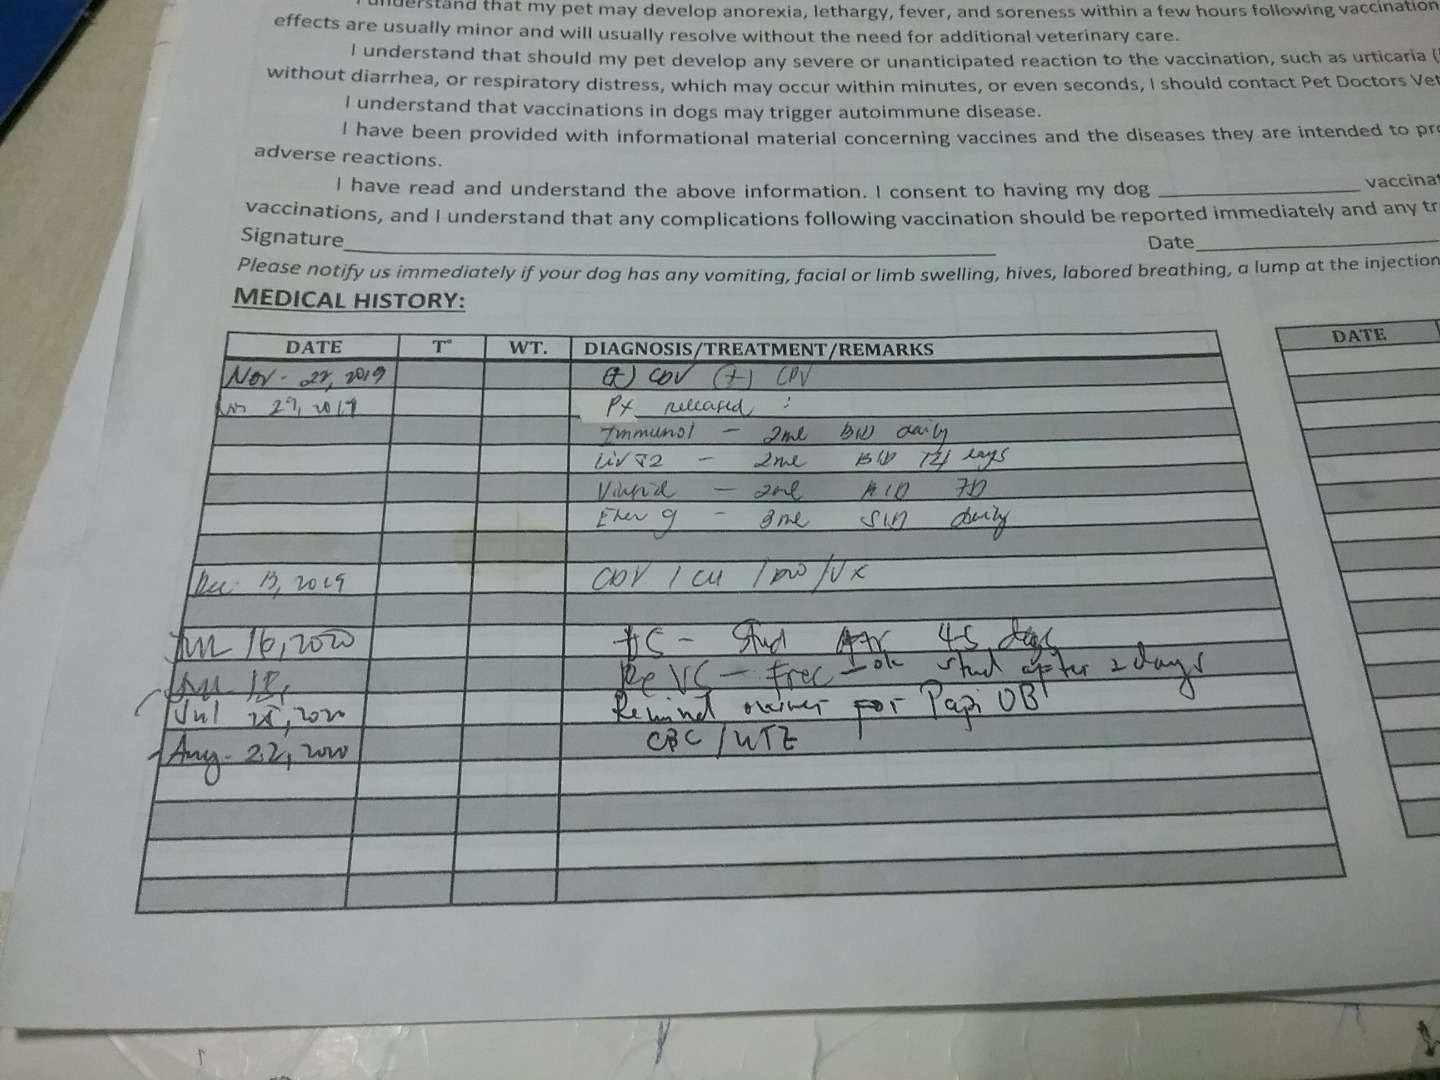 I understand that my pet may develop anorexia, lethargy, fever, and soreness within a few hours following vaccination
effects are usually minor and will usually resolve without the need for additional veterinary care.
I understand that should my pet develop any severe or unanticipated reaction to the vaccination, such as urticaria (
without diarrhea, or respiratory distress, which may occur within minutes, or even seconds, I should contact Pet Doctors Vet
I understand that vaccinations in dogs may trigger autoimmune disease.
I have been provided with informational material concerning vaccines and the diseases they are intended to pr
adverse reactions.
I have read and understand the above information. I consent to having my dog ____________ vaccina
vaccinations, and I understand that any complications following vaccination should be reported immediately and any tr
Signature____________ Date____________
Please notify us immediately if your dog has any vomiting, facial or limb swelling, hives, labored breathing, a lump at the injection
MEDICAL HISTORY:
DATE T° WT. DIAGNOSIS/TREATMENT/REMARKS DATE
Nov - 2019 (+) CDV (+) CPV
29, 2019 Px released :
Immunol - 2ml BID daily
Liv 52 - 2ml BID days
- 2ml 7D
Ener g - 3ml SID daily
Dec. 13, 2019 CDV / /VX
16, 2020 - Stud 45 days
- ok stud after 2 days
Jul 2020 Remind owner for Papi OB
Aug. 22, 2020 CBC /UTZ